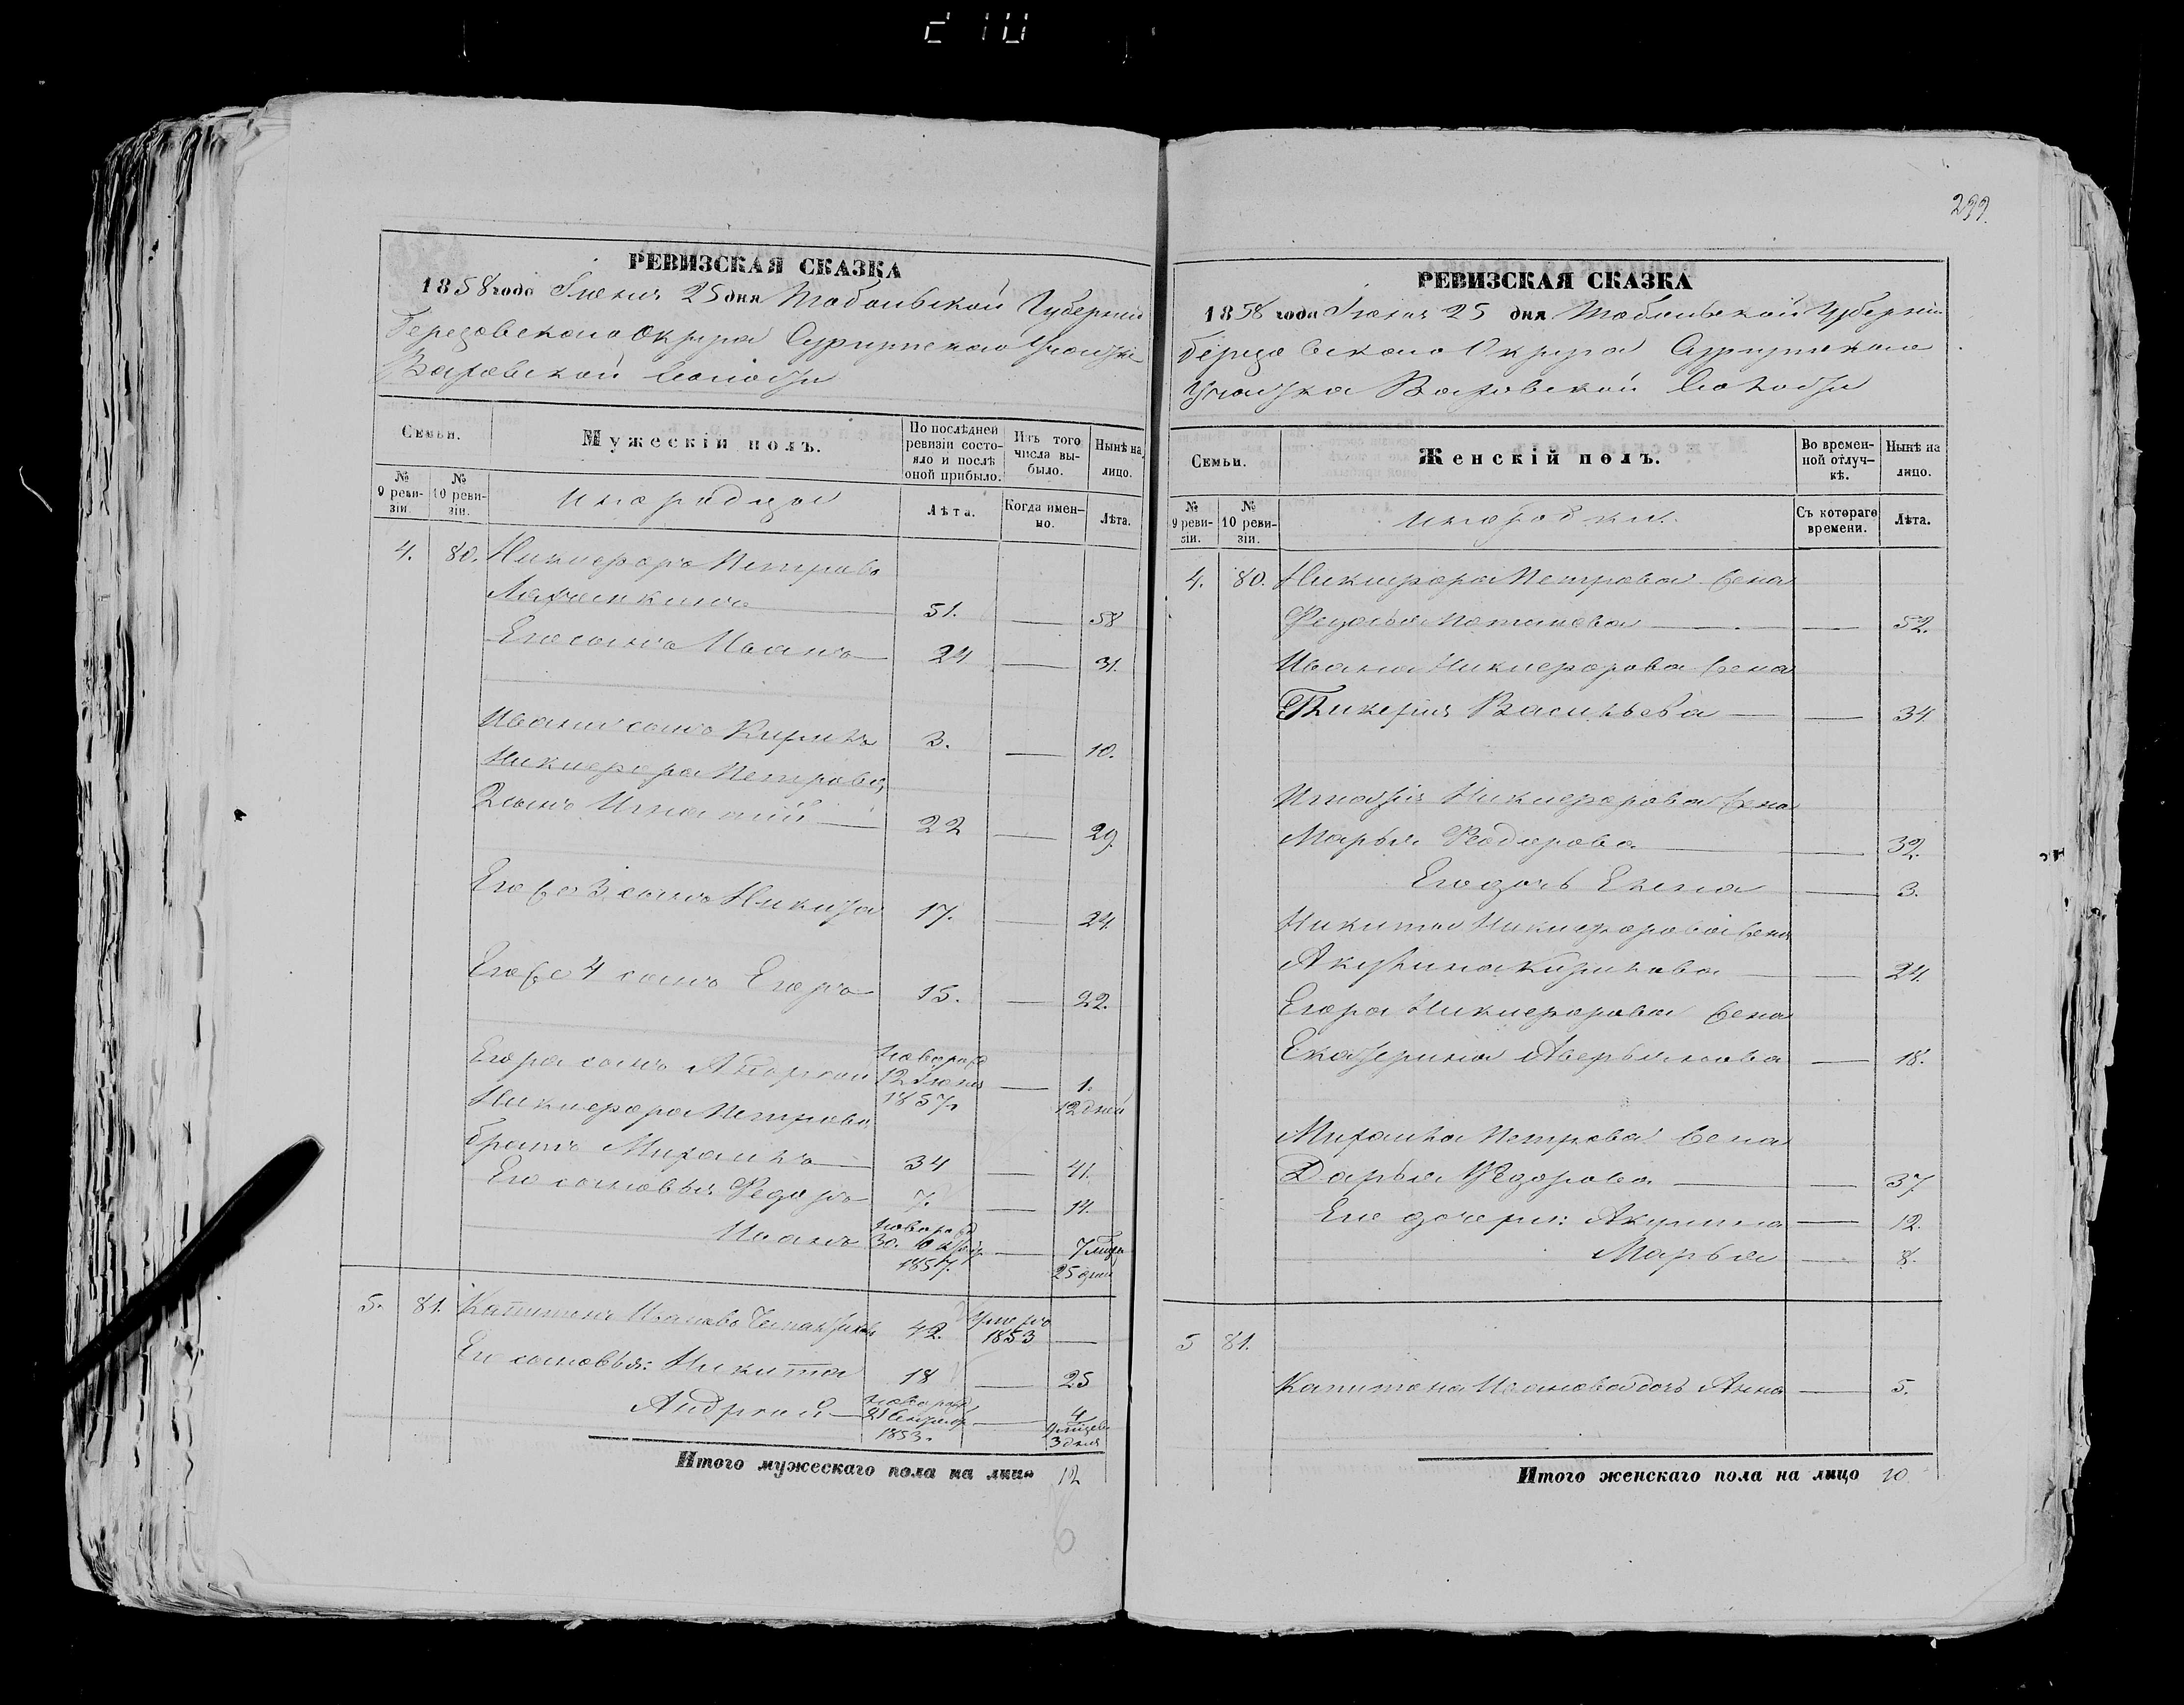 299.
РЕВИЗСКАЯ СКАЗКА
1858 года Іюня 25 дня Тобольской Губерніи
Березовскаго Округа Сургутскаго Участка
Ваховской волости
Семьи.
Мужескій полъ.
По послѣдней ревизіи состояло и послѣ оной прибыло.
Изъ того числа выбыло.
Нынѣ на лицо.
№ 9 ревизіи.
№ 10 ревизіи.
Инородцы
Лѣта.
Когда именно.
Лѣта.
4. 80. Никифоръ Петровъ
51. — 58
Его сынъ Иванъ 24 — 31.
Ивана сынъ Кирилъ 3. — 10.
Никифора Петрова
2 сынъ Игнатій 22 — 29.
Его же 3 сынъ Никита 17. — 24.
Его же 4 сынъ Егоръ 15. — 22.
Егора сынъ Андрей новорож 12 Іюня 1857. — 1. 12 дней
Никифора Петрова
братъ Михаилъ 34 — 41.
Его сыновья Федоръ 7. — 14.
Иванъ новорож 30. 1857. — 7 мцъ 25 дней
5. 81. Капитонъ Ивановъ 42. Умеръ 1853 —
Его сыновья: Никита 18 — 25
Андрей новорож 21 Сентябр 1853. — 4 9 мцев 3 дня
Итого мужескаго пола на лицо 12
6
РЕВИЗСКАЯ СКАЗКА
1858 года Іюня 25 дня Тобольской Губерніи
Березовскаго Округа Сургутскаго
Участка Ваховской Волости
Семьи.
Женскій полъ.
Во временной отлучкѣ.
Нынѣ на лицо.
№ 9 ревизіи.
№ 10 ревизіи.
Инородки.
Съ котораго времени.
Лѣта.
4. 80. Никифора Петрова жена
Федосья — 52.
Ивана Никифорова жена
Гликерія Васильева — 34
Игнатія Никифорова жена
Марья Федорова — 32.
Его дочь Елена — 3.
Никиты Никифорова жена
Акулина Кирилова — 24.
Егора Никифорова жена
Екатерина Аверьянова — 18.
Михаила Петрова жена
Дарья Федорова — 37
Его дочери: Акулина — 12.
Марья — 8.
5 81.
Капитона Иванова дочь Анна — 5.
Итого женскаго пола на лицо 10